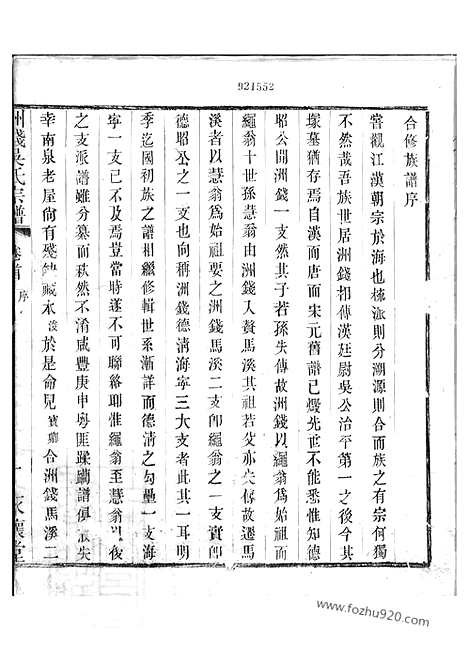 921552
合修族譜序
嘗觀江漢朝宗於海也梳派則分溯源則合而族之有宗何獨
不然哉吾族世居洲錢相傳漢廷尉吳公治平第一之後今其
塚墓猶存焉自漢而唐而宋元舊譜已燬先世不能悉惟知德
昭公開洲錢一支然其子若孫失傳故洲錢以繩翁爲始祖而
繩翁十世孫慧翁由洲錢入贅馬溪其祖若父亦失傳故遷馬
溪者以慧翁爲始祖要之洲錢馬溪二支卽繩翁之一支實卽
德昭公之一支也向稱洲錢德清海寧三大支者此其一耳明
季迄國初族之譜相繼修輯世系漸詳而德清之勾壘一支海
寧一支已不與焉豈當時遂不可聯絡耶惟繩翁至慧翁以後
之支派譜雖分纂而秩然不淆咸豐庚申粵匪蹂躪譜俱散失
幸南泉老屋尚有殘缺藏本 於是命兒寶卿合洲錢馬溪二
洲錢吳氏宗譜 卷首 序 一
www.fozhu920.com